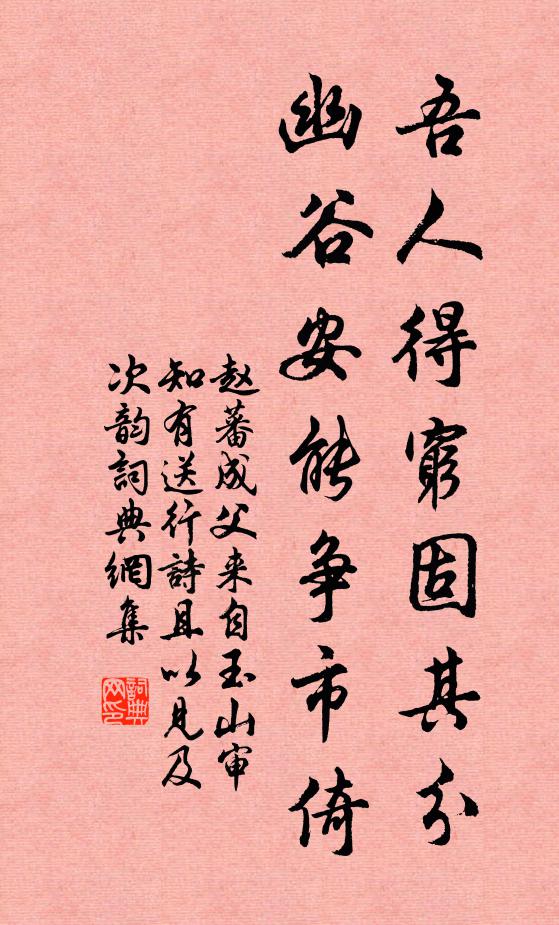 吾人得窮固其分
幽谷安能争市倚
赵蕃成父来自玉山审
知有送行詩且以見及
次韵詞典網集
詞典
网印